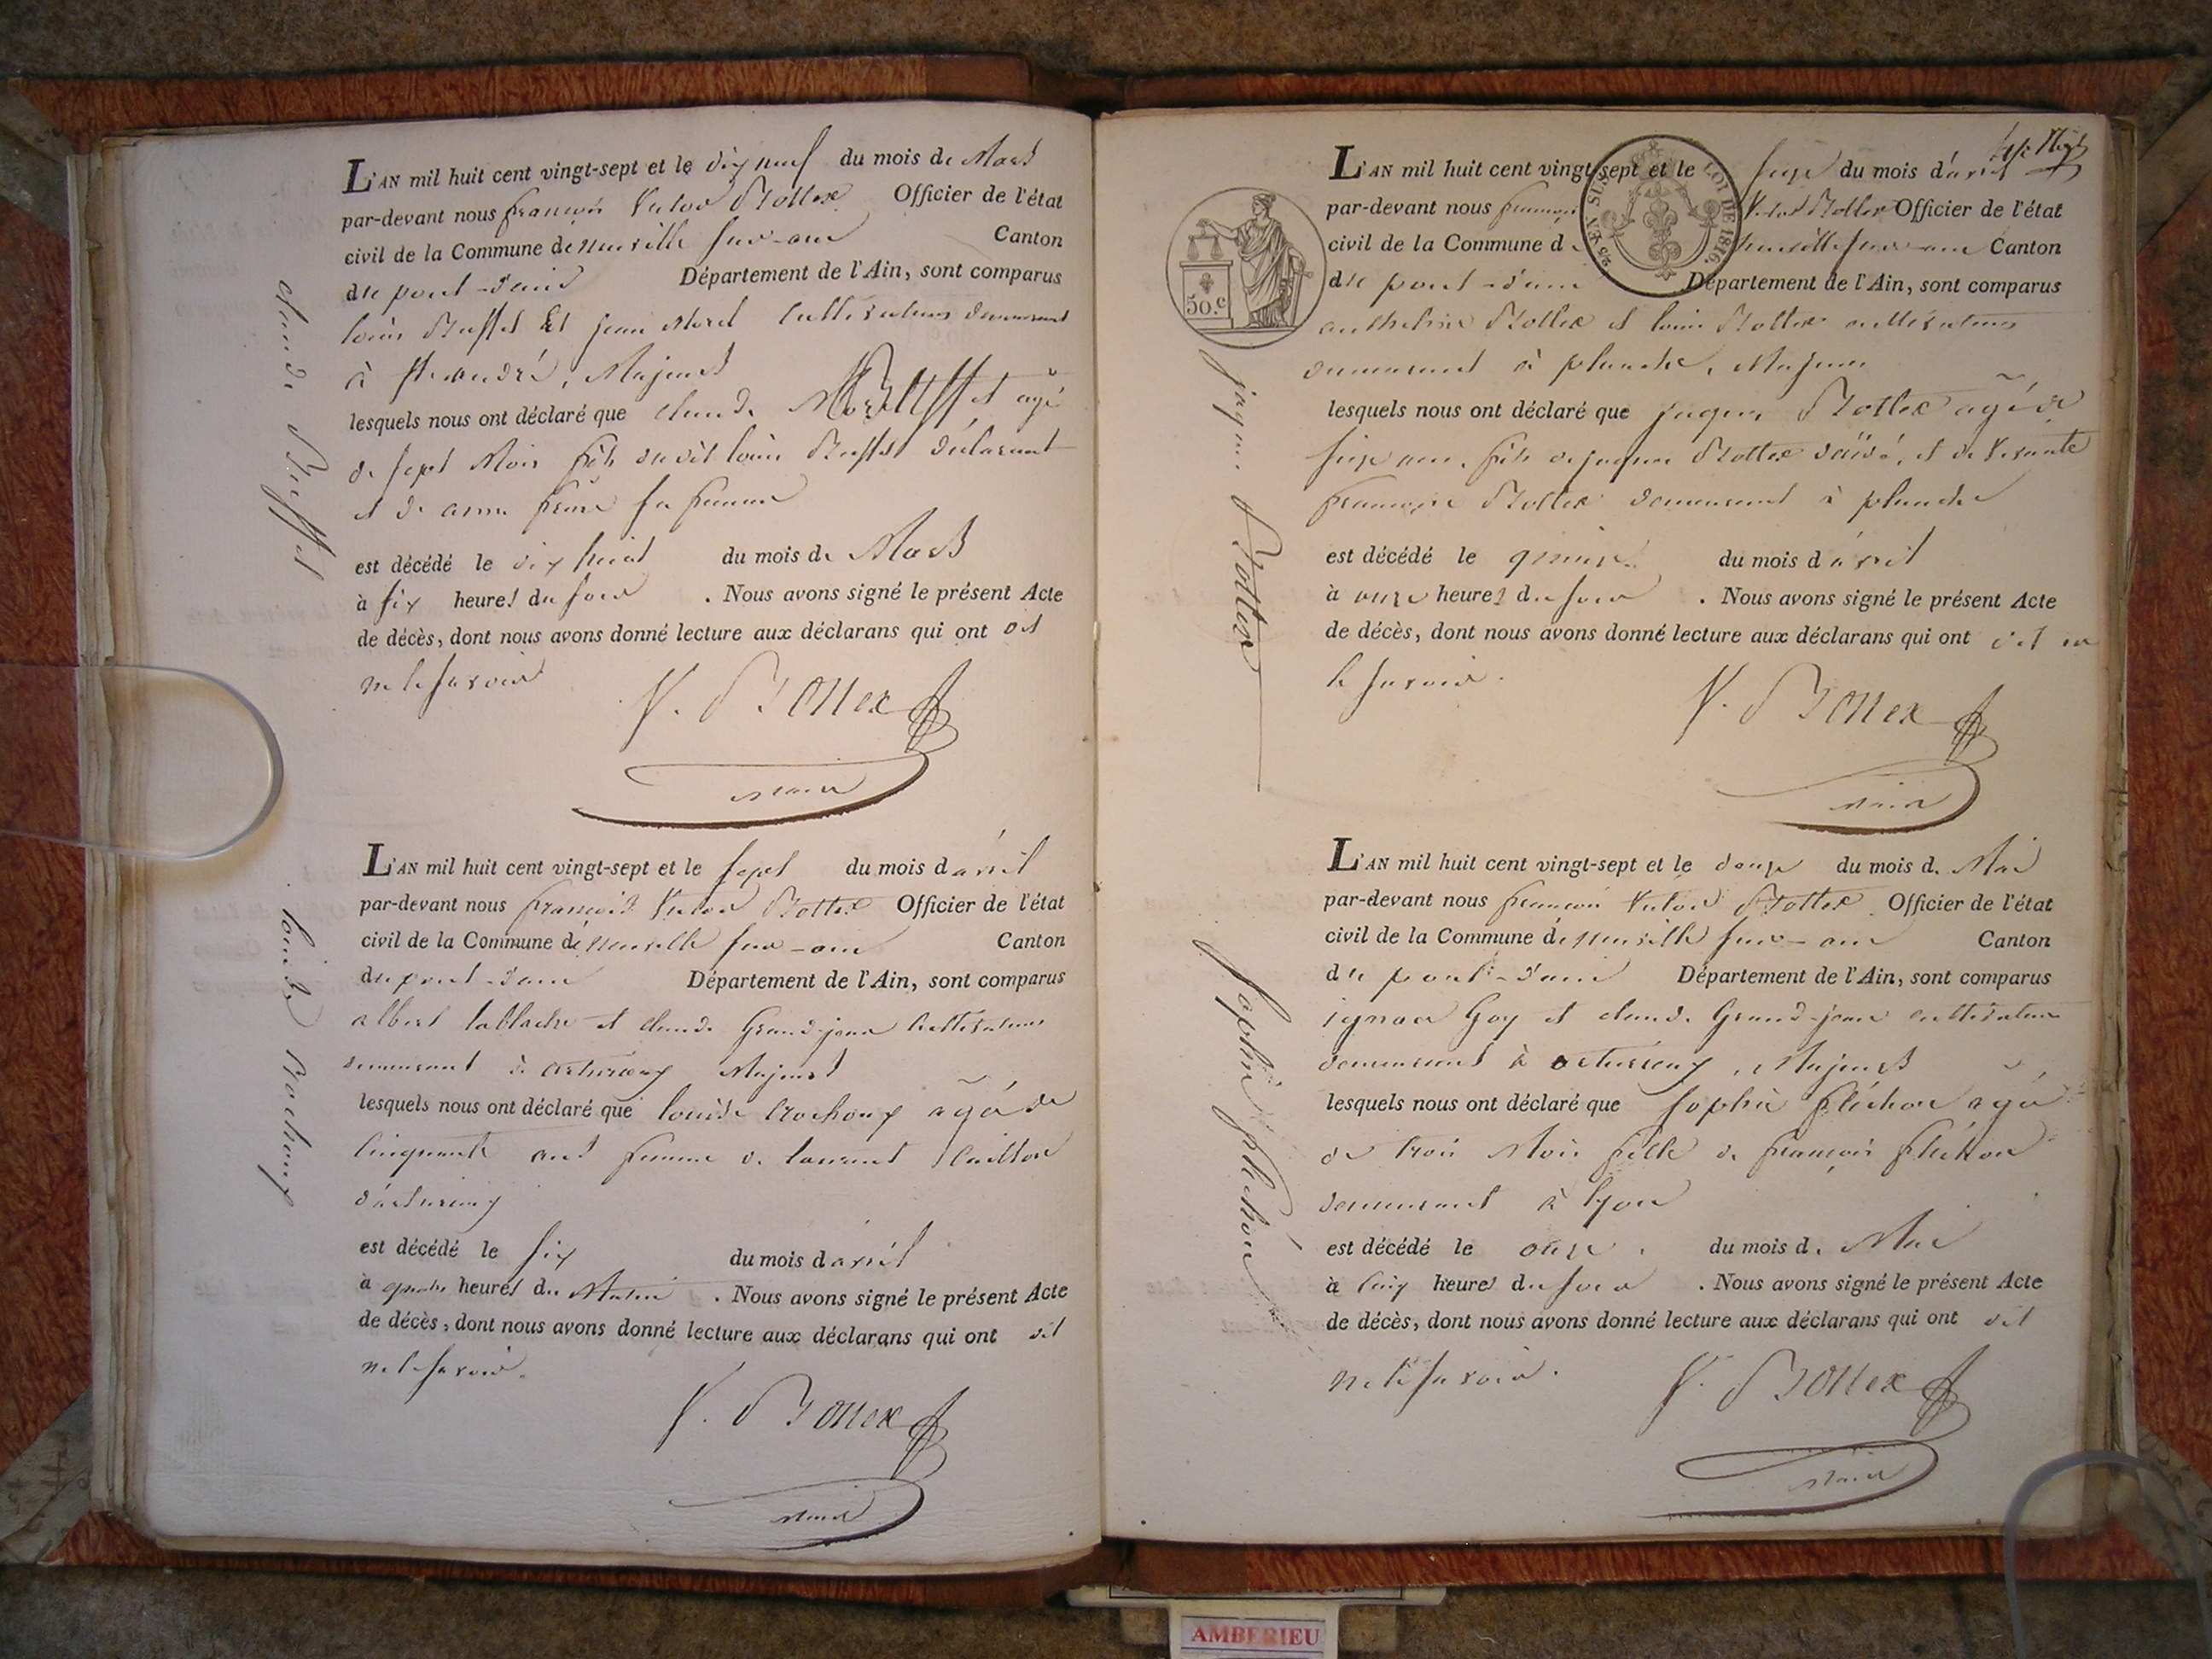 L'AN mil huit cent vingt-sept et le dix neuf du mois de Mars
par-devant nous françois Victor Bottex Officier de l'état
civil de la Commune de neuville sur-ain Canton
du pont-d'ain Département de l'Ain, sont comparus
louis Buffet Et jean Morel Cultivateurs demeurant
à St. andré, Majeurs
lesquels nous ont déclaré que claude Buffet agé
de sept Mois fils dudit louis Buffet déclarant
et de anne sa femme
est décédé le dix huit du mois de Mars
à six heures du soir . Nous avons signé le présent Acte
de décès, dont nous avons donné lecture aux déclarans qui ont dit
ne le savoir
V. Bottex
maire
claude Buffet
L'AN mil huit cent vingt-sept et le sept du mois d'avril
par-devant nous françois Victor Bottex Officier de l'état
civil de la Commune de neuville sur-ain Canton
du pont-d'ain Département de l'Ain, sont comparus
albert lablache et claude Grand-jean Cultivateurs
demeurant à Majeurs
lesquels nous ont déclaré que louise agée de
Cinquante ans femme de laurent
est décédé le six du mois d'avril
à quatre heures du Matin . Nous avons signé le présent Acte
de décès, dont nous avons donné lecture aux déclarans qui ont dit
ne le savoir.
V. Bottex
maire
louise
L'AN mil huit cent vingt-sept et le seize du mois d'avril
par-devant nous françois Victor Bottex Officier de l'état
civil de la Commune de neuville sur-ain Canton
du pont-d'ain Département de l'Ain, sont comparus
anthelme Bottex et louis Bottex cultivateurs
demeurant à planche, Majeurs
lesquels nous ont déclaré que jaques Bottex agé de
seize ans, fils de jaques Bottex décédé, et de vivante
françoise Bottex demeurant à planche
est décédé le quinze du mois d'avril
à onze heures du soir . Nous avons signé le présent Acte
de décès, dont nous avons donné lecture aux déclarans qui ont dit ne
le savoir.
V. Bottex
maire
jaques Bottex
50.c
LOI DE 1816.
L'AN mil huit cent vingt-sept et le douze du mois de Mai
par-devant nous françois Victor Bottex Officier de l'état
civil de la Commune de neuville sur-ain Canton
du pont-d'ain Département de l'Ain, sont comparus
ignace Goy et claude Grand-jean cultivateurs
demeurant à Majeurs
lesquels nous ont déclaré que sophie fléchon agée
de trois Mois fille de françois fléchon
demeurant à lyon
est décédé le onze du mois de Mai
à cinq heures du soir . Nous avons signé le présent Acte
de décès, dont nous avons donné lecture aux déclarans qui ont dit
ne le savoir.
V. Bottex
maire
sophie fléchon
AMBERIEU